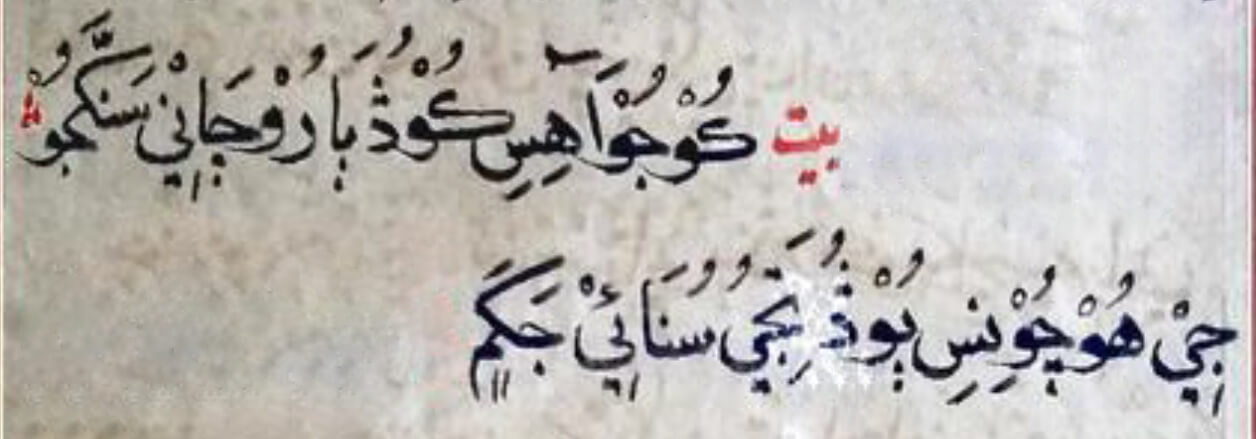 بيت كُوْجُوْ آهِسِ كُوْڎُ بَارُوْ جَانِيْ سَنگَّجُوْ
جِيْ هُوْ چُوْنِسِ بُوْڎُ نِجِيْ سُنَائِيْ جَكَمِ